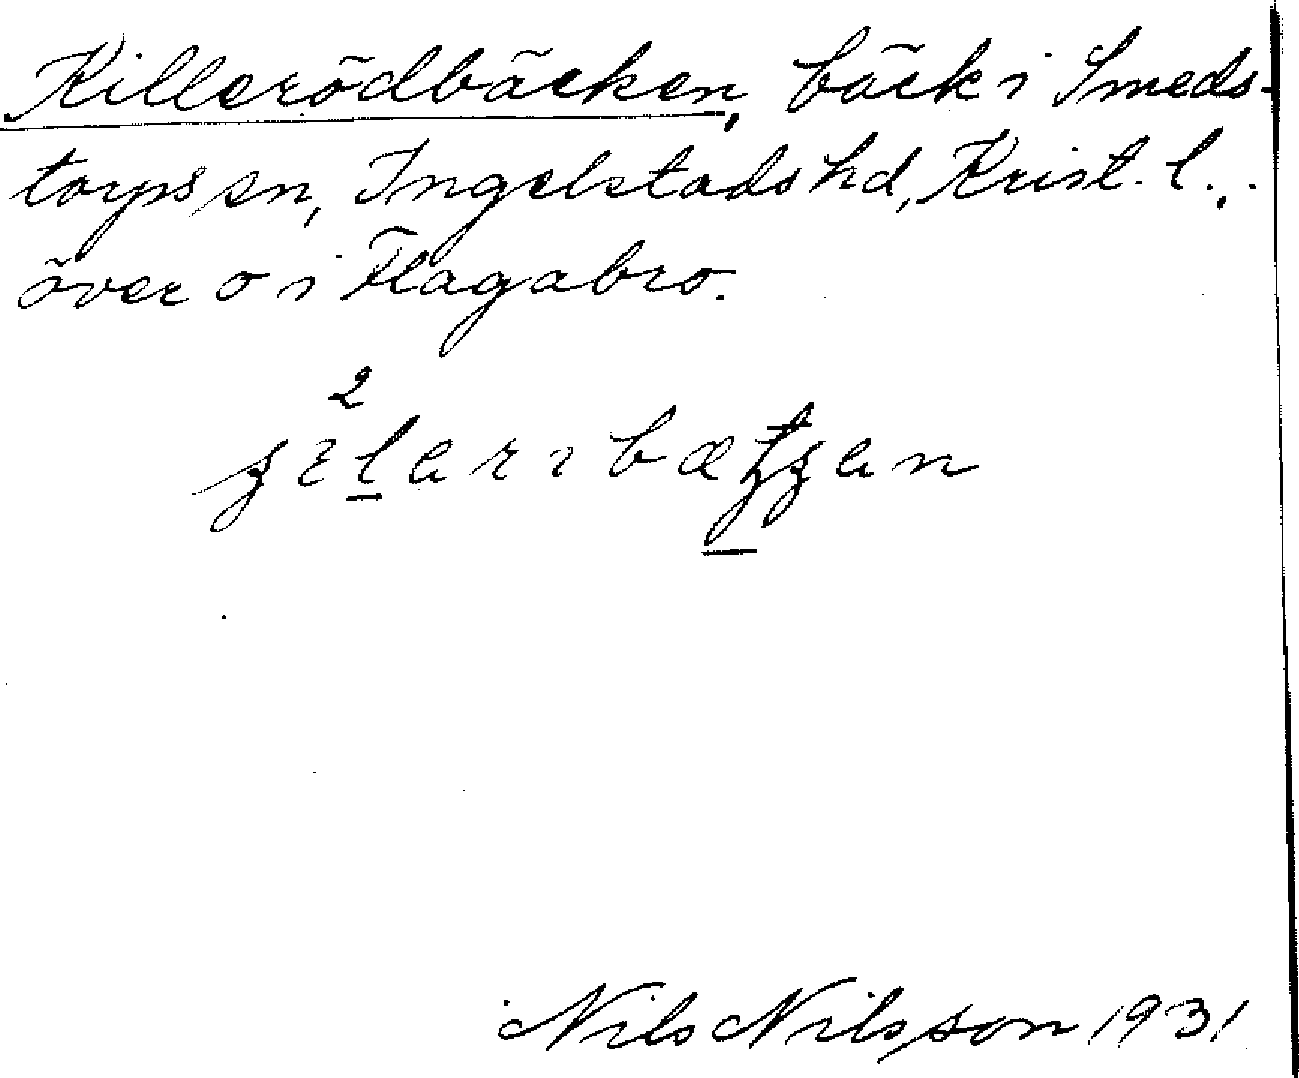 Killerödbäcken, bäck i Smeds-
torps sn, Ingelstads hd, Krist. l.,
över o i Flagabro.
Nils Nilsson 1931